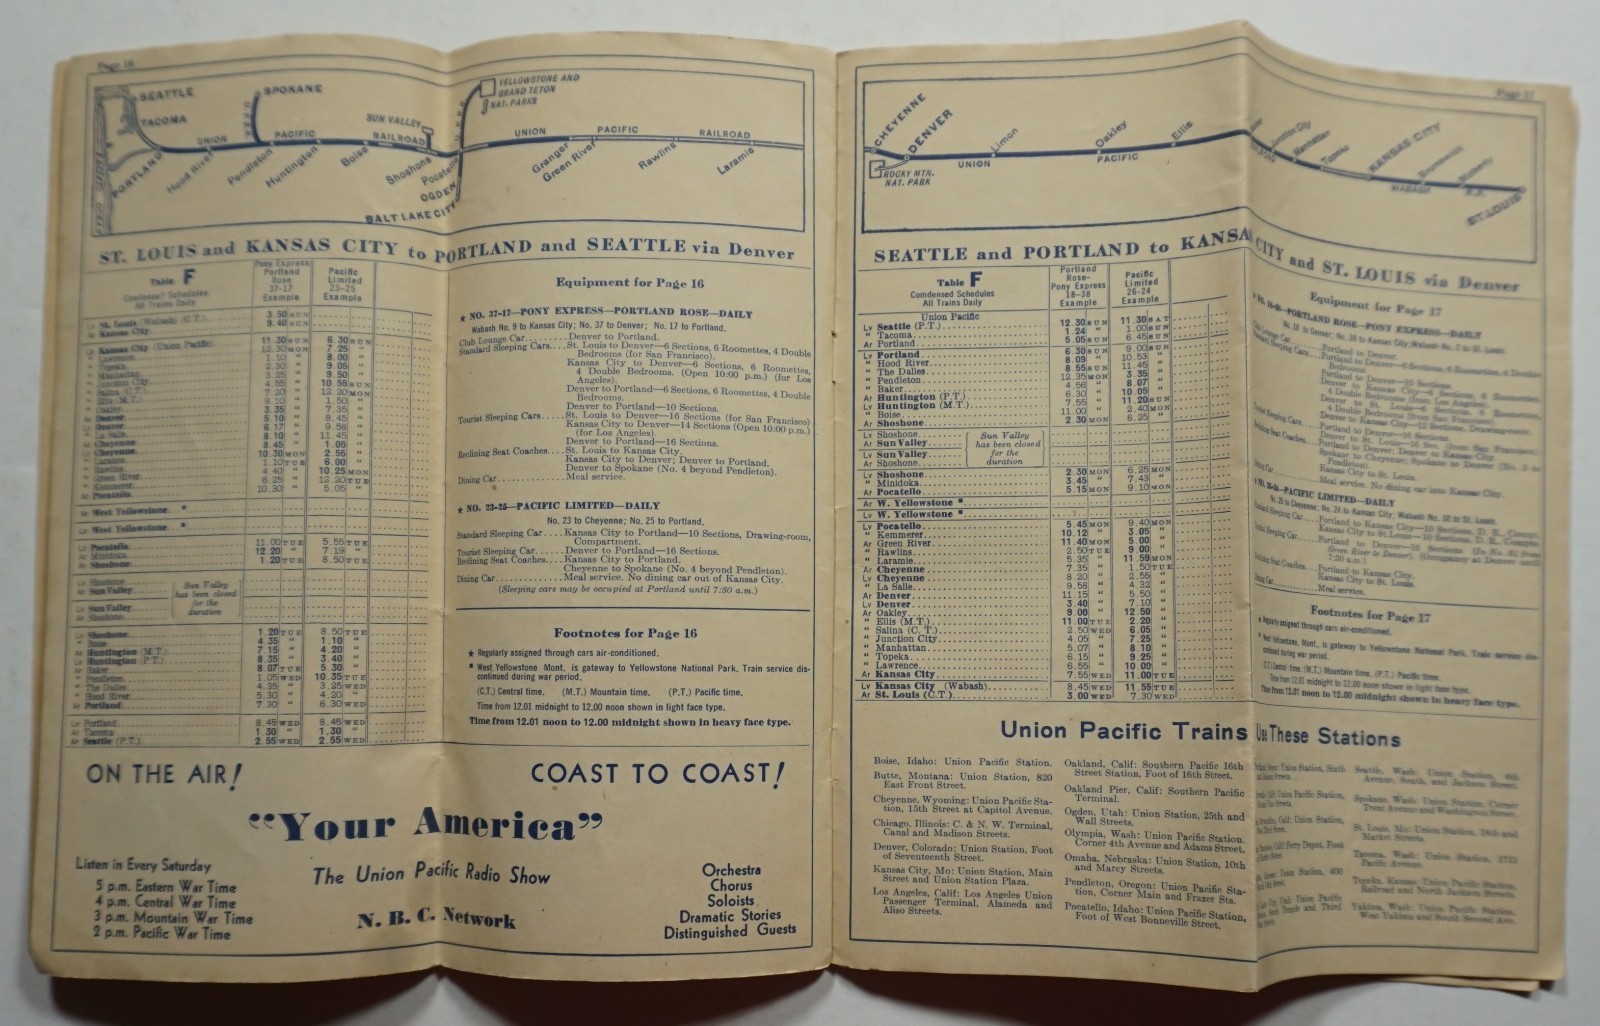 Page 16
SEATTLE
TACOMA
PORTLAND
SPOKANE
UNION
PACIFIC
RAILROAD
Hood River
Pendleton
Huntington
Boise
SUN VALLEY
Shoshone
Pocatello
OGDEN
SALT LAKE CITY
YELLOWSTONE AND
GRAND TETON
NAT. PARKS
UNION
PACIFIC
RAILROAD
Granger
Green River
Rawlins
Laramie
ST. LOUIS and KANSAS CITY to PORTLAND and SEATTLE via Denver
Table F
Condensed Schedules
All Trains Daily
Pony Express
Portland
Rose
37-17
Example
Pacific
Limited
23-25
Example
Lv St. Louis (Wabash) (C.T.) 3.50 SUN
Ar Kansas City 9.40 SUN
Lv Kansas City (Union Pacific) 11.30 SUN 6.30 SUN
" Lawrence 12.30 MON 7.25 "
" Topeka 1.10 " 8.00 "
" Manhattan 2.30 " 9.05 "
" Junction City 3.25 " 9.50 "
" Salina (C.T.) 4.55 " 10.55 SUN
" Ellis (M.T.) 7.20 " 12.20 MON
" Oakley 9.10 " 1.50 "
Ar Denver 3.35 " 7.35 "
Lv Denver 5.10 " 8.45 "
" La Salle 6.17 " 9.58 "
Ar Cheyenne 8.10 " 11.45 "
Lv Cheyenne 8.45 " 1.05 "
" Laramie 10.30 MON 2.55 "
" Rawlins 1.10 TUE 6.00 "
" Green River 4.40 " 10.25 MON
" Kemmerer 6.25 " 12.20 TUE
Ar Pocatello 10.30 " 5.05 "
Ar West Yellowstone *
Lv West Yellowstone *
Lv Pocatello 11.00 TUE 5.55 TUE
Ar Minidoka 12.20 " 7.19 "
Ar Shoshone 1.20 TUE 8.50 TUE
Lv Shoshone
Ar Sun Valley
Lv Sun Valley
Ar Shoshone
Sun Valley
has been closed
for the
duration
Lv Shoshone 1.20 TUE 8.50 TUE
" Boise 4.35 " 1.10 "
Ar Huntington (M.T.) 7.15 " 4.20 "
Lv Huntington (P.T.) 6.35 " 3.40 "
" Baker 8.07 TUE 5.30 "
" Pendleton 1.05 WED 10.35 TUE
" The Dalles 4.35 " 3.25 WED
" Hood River 5.30 " 4.20 "
Ar Portland 7.30 " 6.30 WED
Lv Portland 8.45 WED 8.45 WED
Ar Tacoma 1.30 " 1.30 "
Ar Seattle (P.T.) 2.55 WED 2.55 WED
Equipment for Page 16
★ NO. 37-17—PONY EXPRESS—PORTLAND ROSE—DAILY
Wabash No. 9 to Kansas City; No. 37 to Denver; No. 17 to Portland.
Club Lounge Car Denver to Portland.
Standard Sleeping Cars St. Louis to Denver—6 Sections, 6 Roomettes, 4 Double
Bedrooms (for San Francisco).
Kansas City to Denver—6 Sections, 6 Roomettes,
4 Double Bedrooms. (Open 10:00 p.m.) (for Los
Angeles).
Denver to Portland—6 Sections, 6 Roomettes, 4 Double
Bedrooms.
Denver to Portland—10 Sections.
Tourist Sleeping Cars St. Louis to Denver—16 Sections (for San Francisco)
Kansas City to Denver—14 Sections (Open 10:00 p.m.)
(for Los Angeles).
Denver to Portland—16 Sections.
Reclining Seat Coaches St. Louis to Kansas City.
Kansas City to Denver; Denver to Portland.
Denver to Spokane (No. 4 beyond Pendleton).
Dining Car Meal service.
★ NO. 23-25—PACIFIC LIMITED—DAILY
No. 23 to Cheyenne; No. 25 to Portland.
Standard Sleeping Car Kansas City to Portland—10 Sections, Drawing-room,
Compartment.
Tourist Sleeping Car Denver to Portland—16 Sections.
Reclining Seat Coaches Kansas City to Portland.
Cheyenne to Spokane (No. 4 beyond Pendleton).
Dining Car Meal service. No dining car out of Kansas City.
(Sleeping cars may be occupied at Portland until 7:30 a.m.)
Footnotes for Page 16
★ Regularly assigned through cars air-conditioned.
* West Yellowstone Mont. is gateway to Yellowstone National Park. Train service dis-
continued during war period.
(C.T.) Central time. (M.T.) Mountain time. (P.T.) Pacific time.
Time from 12.01 midnight to 12.00 noon shown in light face type.
Time from 12.01 noon to 12.00 midnight shown in heavy face type.
ON THE AIR! COAST TO COAST!
"Your America"
Listen in Every Saturday
5 p.m. Eastern War Time
4 p.m. Central War Time
3 p.m. Mountain War Time
2 p.m. Pacific War Time
The Union Pacific Radio Show
N. B. C. Network
Orchestra
Chorus
Soloists
Dramatic Stories
Distinguished Guests
Page 17
CHEYENNE
DENVER
ROCKY MTN.
NAT. PARK
UNION
PACIFIC
Limon
Oakley
Ellis
Junction City
Manhattan
Topeka
KANSAS CITY
WABASH
ST. LOUIS
SEATTLE and PORTLAND to KANSAS CITY and ST. LOUIS via Denver
Table F
Condensed Schedules
All Trains Daily
Portland
Rose-
Pony Express
18-38
Example
Pacific
Limited
26-24
Example
Union Pacific
Lv Seattle (P.T.) 12.30 SUN 11.30 SAT
" Tacoma 1.24 " 1.00 SUN
Ar Portland 5.05 SUN 6.45 SUN
Lv Portland 6.30 SUN 9.00 SUN
" Hood River 8.09 " 10.53 "
" The Dalles 8.55 SUN 11.45 "
" Pendleton 12.35 MON 3.35 "
" Baker 4.56 " 8.07 "
Ar Huntington (P.T.) 6.30 " 10.05 "
Lv Huntington (M.T.) 7.55 " 11.20 SUN
" Boise 11.00 " 2.40 MON
Ar Shoshone 2.30 MON 6.25 "
Lv Shoshone
Ar Sun Valley
Lv Sun Valley
Ar Shoshone
Sun Valley
has been closed
for the
duration
Lv Shoshone 2.30 MON 6.25 MON
" Minidoka 3.45 " 7.43 "
Ar Pocatello 5.15 MON 9.10 MON
Ar W. Yellowstone *
Lv W. Yellowstone *
Lv Pocatello 5.45 MON 9.40 MON
" Kemmerer 10.12 " 3.05 "
Ar Green River 11.40 MON 5.00 "
" Rawlins 2.50 TUE 9.00 "
" Laramie 5.35 " 11.59 MON
Ar Cheyenne 7.35 " 1.50 TUE
Lv Cheyenne 8.20 " 2.55 "
" La Salle 9.58 " 4.32 "
Ar Denver 11.15 " 5.50 "
Lv Denver 3.40 " 7.10 "
Ar Oakley 9.00 " 12.50 "
" Ellis (M.T.) 11.00 TUE 2.20 "
" Salina (C.T.) 2.50 WED 6.05 "
" Junction City 4.05 " 7.25 "
" Manhattan 5.07 " 8.10 "
" Topeka 6.15 " 9.25 "
" Lawrence 6.55 " 10.00 "
Ar Kansas City 7.55 WED 11.00 TUE
Lv Kansas City (Wabash) 8.45 WED 11.55 TUE
Ar St. Louis (C.T.) 3.00 WED 7.30 WED
Equipment for Page 17
★ No. 18-38—PORTLAND ROSE—PONY EXPRESS—DAILY
No. 18 to Denver; No. 38 to Kansas City; Wabash No. 2 to St. Louis.
Portland to Denver.
Portland to Denver—10 Sections.
Portland to Denver—16 Sections.
Kansas City to St. Louis.
Meal service. No dining car into Kansas City.
★ No. 26-24—PACIFIC LIMITED—DAILY
Portland to Kansas City.
Kansas City to St. Louis.
Meal service.
Footnotes for Page 17
★ Regularly assigned through cars air-conditioned.
* West Yellowstone, Mont., is gateway to Yellowstone National Park. Train service discon-
tinued during war period.
(C.T.) Central time. (M.T.) Mountain time. (P.T.) Pacific time.
Time from 12.01 midnight to 12.00 noon shown in light face type.
Time from 12.01 noon to 12.00 midnight shown in heavy face type.
Union Pacific Trains Use These Stations
Boise, Idaho: Union Pacific Station.
Butte, Montana: Union Station, 820
East Front Street.
Cheyenne, Wyoming: Union Pacific Sta-
tion, 15th Street at Capitol Avenue.
Chicago, Illinois: C. & N. W. Terminal,
Canal and Madison Streets.
Denver, Colorado: Union Station, Foot
of Seventeenth Street.
Kansas City, Mo: Union Station, Main
Street and Union Station Plaza.
Los Angeles, Calif: Los Angeles Union
Passenger Terminal, Alameda and
Aliso Streets.
Oakland, Calif: Southern Pacific 16th
Street Station, Foot of 16th Street.
Oakland Pier, Calif: Southern Pacific
Terminal.
Ogden, Utah: Union Station, 25th and
Wall Streets.
Olympia, Wash: Union Pacific Station.
Corner 4th Avenue and Adams Street.
Omaha, Nebraska: Union Station, 10th
and Marcy Streets.
Pendleton, Oregon: Union Pacific Sta-
tion, Corner Main and Frazer Sts.
Pocatello, Idaho: Union Pacific Station,
Foot of West Bonneville Street.
Seattle, Wash: Union Station, 4th
Avenue, South, and Jackson Street.
Spokane, Wash: Union Station, Corner
Trent Avenue and Washington Street.
St. Louis, Mo: Union Station, 18th and
Market Streets.
Tacoma, Wash: Union Station, 1713
Pacific Avenue.
Topeka, Kansas: Union Pacific Station,
Railroad and North Jackson Streets.
Yakima, Wash: Union Pacific Station,
West Yakima and South Second Ave.